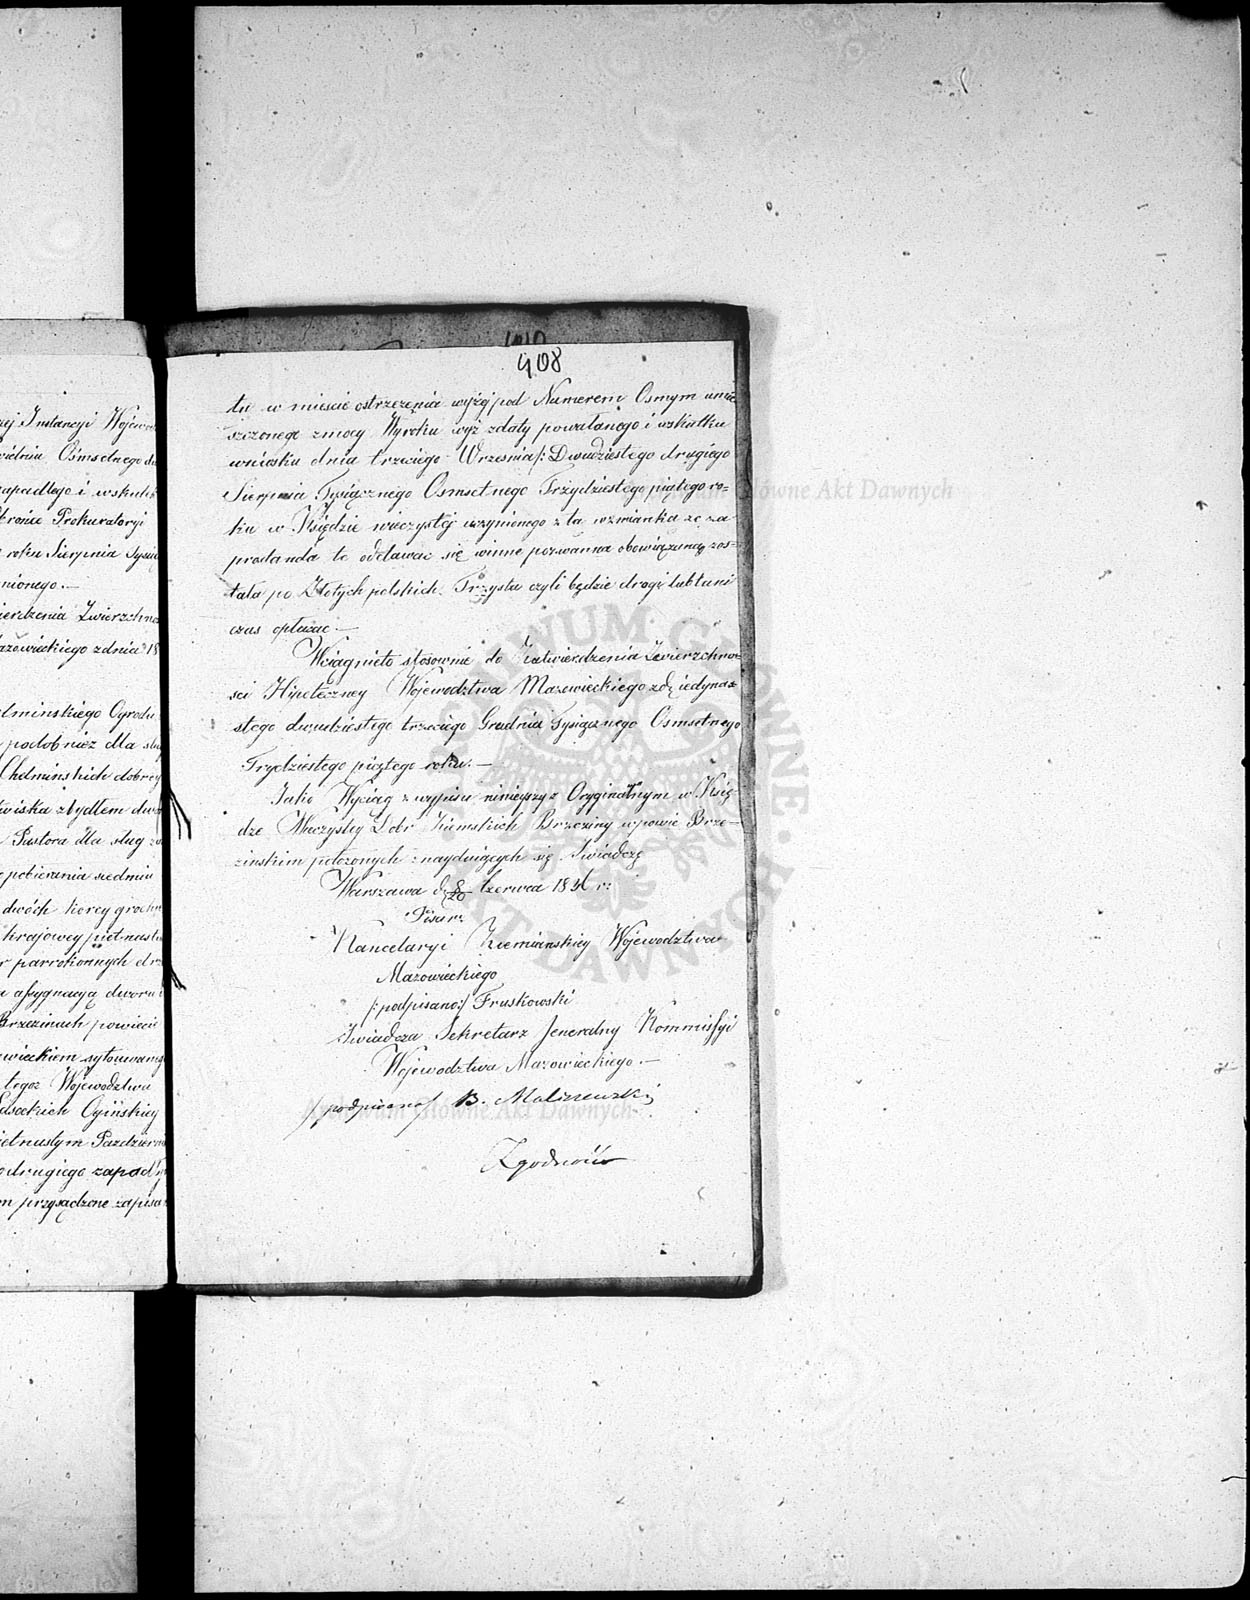 zej Instancyi Wojewo
Ośmsetnego
zapadłego i wskutek
stronie Prokuratoryi
roku Sierpnia Tysią
nionego. —
ierdzenia Zwierzchno
azowieckiego z dnia 18
ełminskiego Ogrodu
podobnież dla słu
Chełminskich dobrey
wiska z bydłem dwo
Pastora dla sług
pobierania siedmiu
dwóch korcy groch
krajowey piętnastu
parrokonnych
assygnacyą dworu
Brzezinach powiecie
wieckiem sytuowanego
tegoż Województwa
Ogińskiey
iętnastym Październi
drugiego zapad
przysądzone zapisa
408
tu w mieście ostrzeżenia wyżej pod Numerem Osmym umie
szczonego zmocy Wyroku wyż zdaty powołanego i wskutku
wniosku dnia trzeciego Września /: Dwudziestego drugiego
Sierpnia Tysiącznego Osmsetnego Trzydziestego piątego ro-
ku w Księdze wieczystej uczynionego z tą wzmianką że za
prodanda te odbawać się winne pozwanna obowiązaną zos-
tała po Złotych polskich Trzysta czyli będzie drogi lub tani
czas opłacac —
Wciągnięto stosownie do Zatwierdzenia Zwierzchno-
sci Hipoteczney Województwa Mazowieckiego z d. jedyna-
stego dwudziestego trzeciego Grudnia Tysiącznego Osmsetnego
Trydziestego piątego roku. —
Jako Wyciąg z wypisu niniejszy z Oryginalnym w Księ
dze Wieczystey Dobr Ziemskich Brzeziny wpowie Brze-
zinskim położonych znaydujących się Swiadczę
Warszawa d. 8/20 Czerwca 1836 r:
Pisarz
Kancelaryi Ziemianskiey Województwa
Mazowieckiego
/:podpisano:/ Truskowski
Swiadcza Sekretarz Jeneralny Kommissyi
Województwa Mazowieckiego. —
/podpisano/ B. Maliszewski
Zgodność
Archiwum Główne Akt Dawnych
ARCHIWUM GŁÓWNE AKT DAWNYCH
Archiwum Główne Akt Dawnych